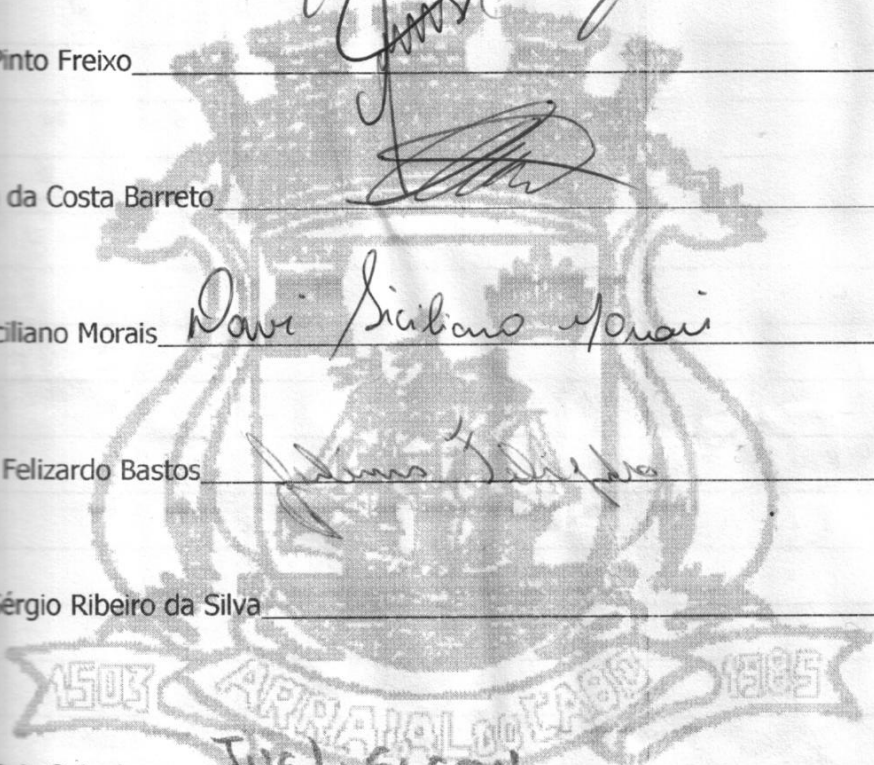 Pinto Freixo
da Costa Barreto
ciliano Morais Davi Siciliano Morais
Felizardo Bastos
Sérgio Ribeiro da Silva
1503 ARRAIAL DO CABO 1985